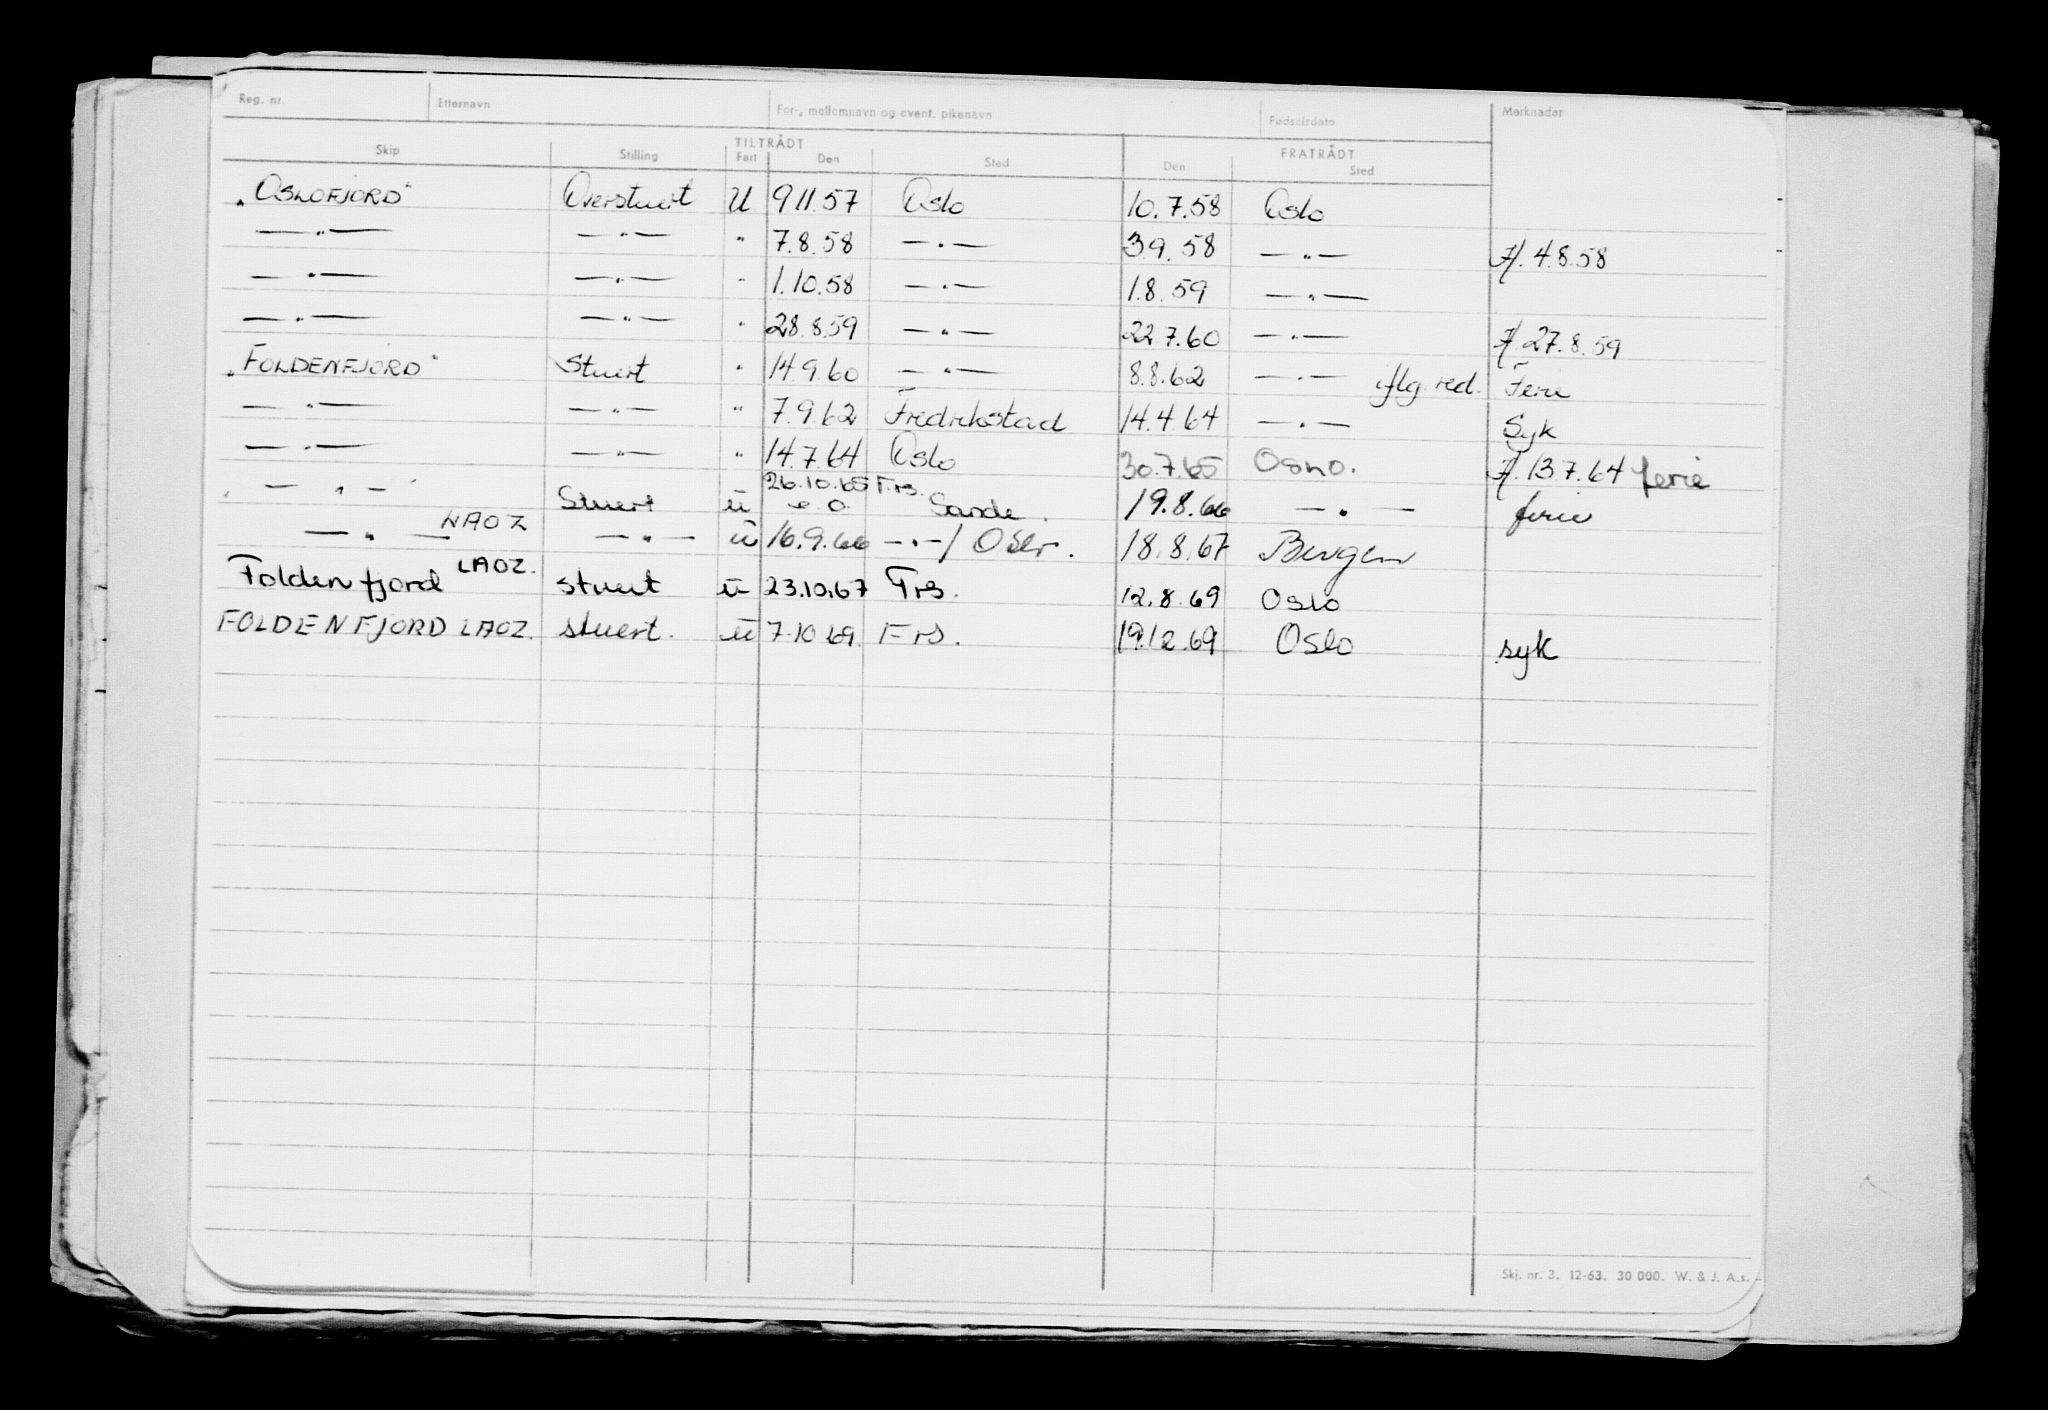 Reg. nr. Etternavn For-, mellomnavn og event. pikenavn Fødselsdato Merknader
TILTRÅDT FRATRÅDT
Skip Stilling Fart Den Sted Den Sted
"OSLOFJORD" Overstuert U 9.11.57 Oslo 10.7.58 Oslo
—"— —"— " 7.8.58 —"— 3.9.58 —"— 4.8.58
—"— —"— " 1.10.58 —"— 1.8.59 —"—
—"— —"— " 28.8.59 —"— 22.7.60 —"— 27.8.59
"FOLDENFJORD" Stuert " 14.9.60 —"— 8.8.62 —"— iflg. red. Ferie
—"— —"— " 7.9.62 Fredrikstad 14.4.64 —"— Syk
—"— —"— " 14.7.64 Oslo 30.7.65 OSLO. 13.7.64 ferie
—"— Stuert u 26.10.65 Frs. Sande. 19.8.66 —"— ferie
—"— LAOZ —"— u 16.9.66 —"—/Oslo. 18.8.67 Bergen
Foldenfjord LAOZ. stuert u 23.10.67 Frs. 12.8.69 Oslo
FOLDENFJORD LAOZ. stuert. u 7.10.69. Frs. 19.12.69 Oslo syk
Skj. nr. 3. 12-63. 30 000. W. & J. A.s.